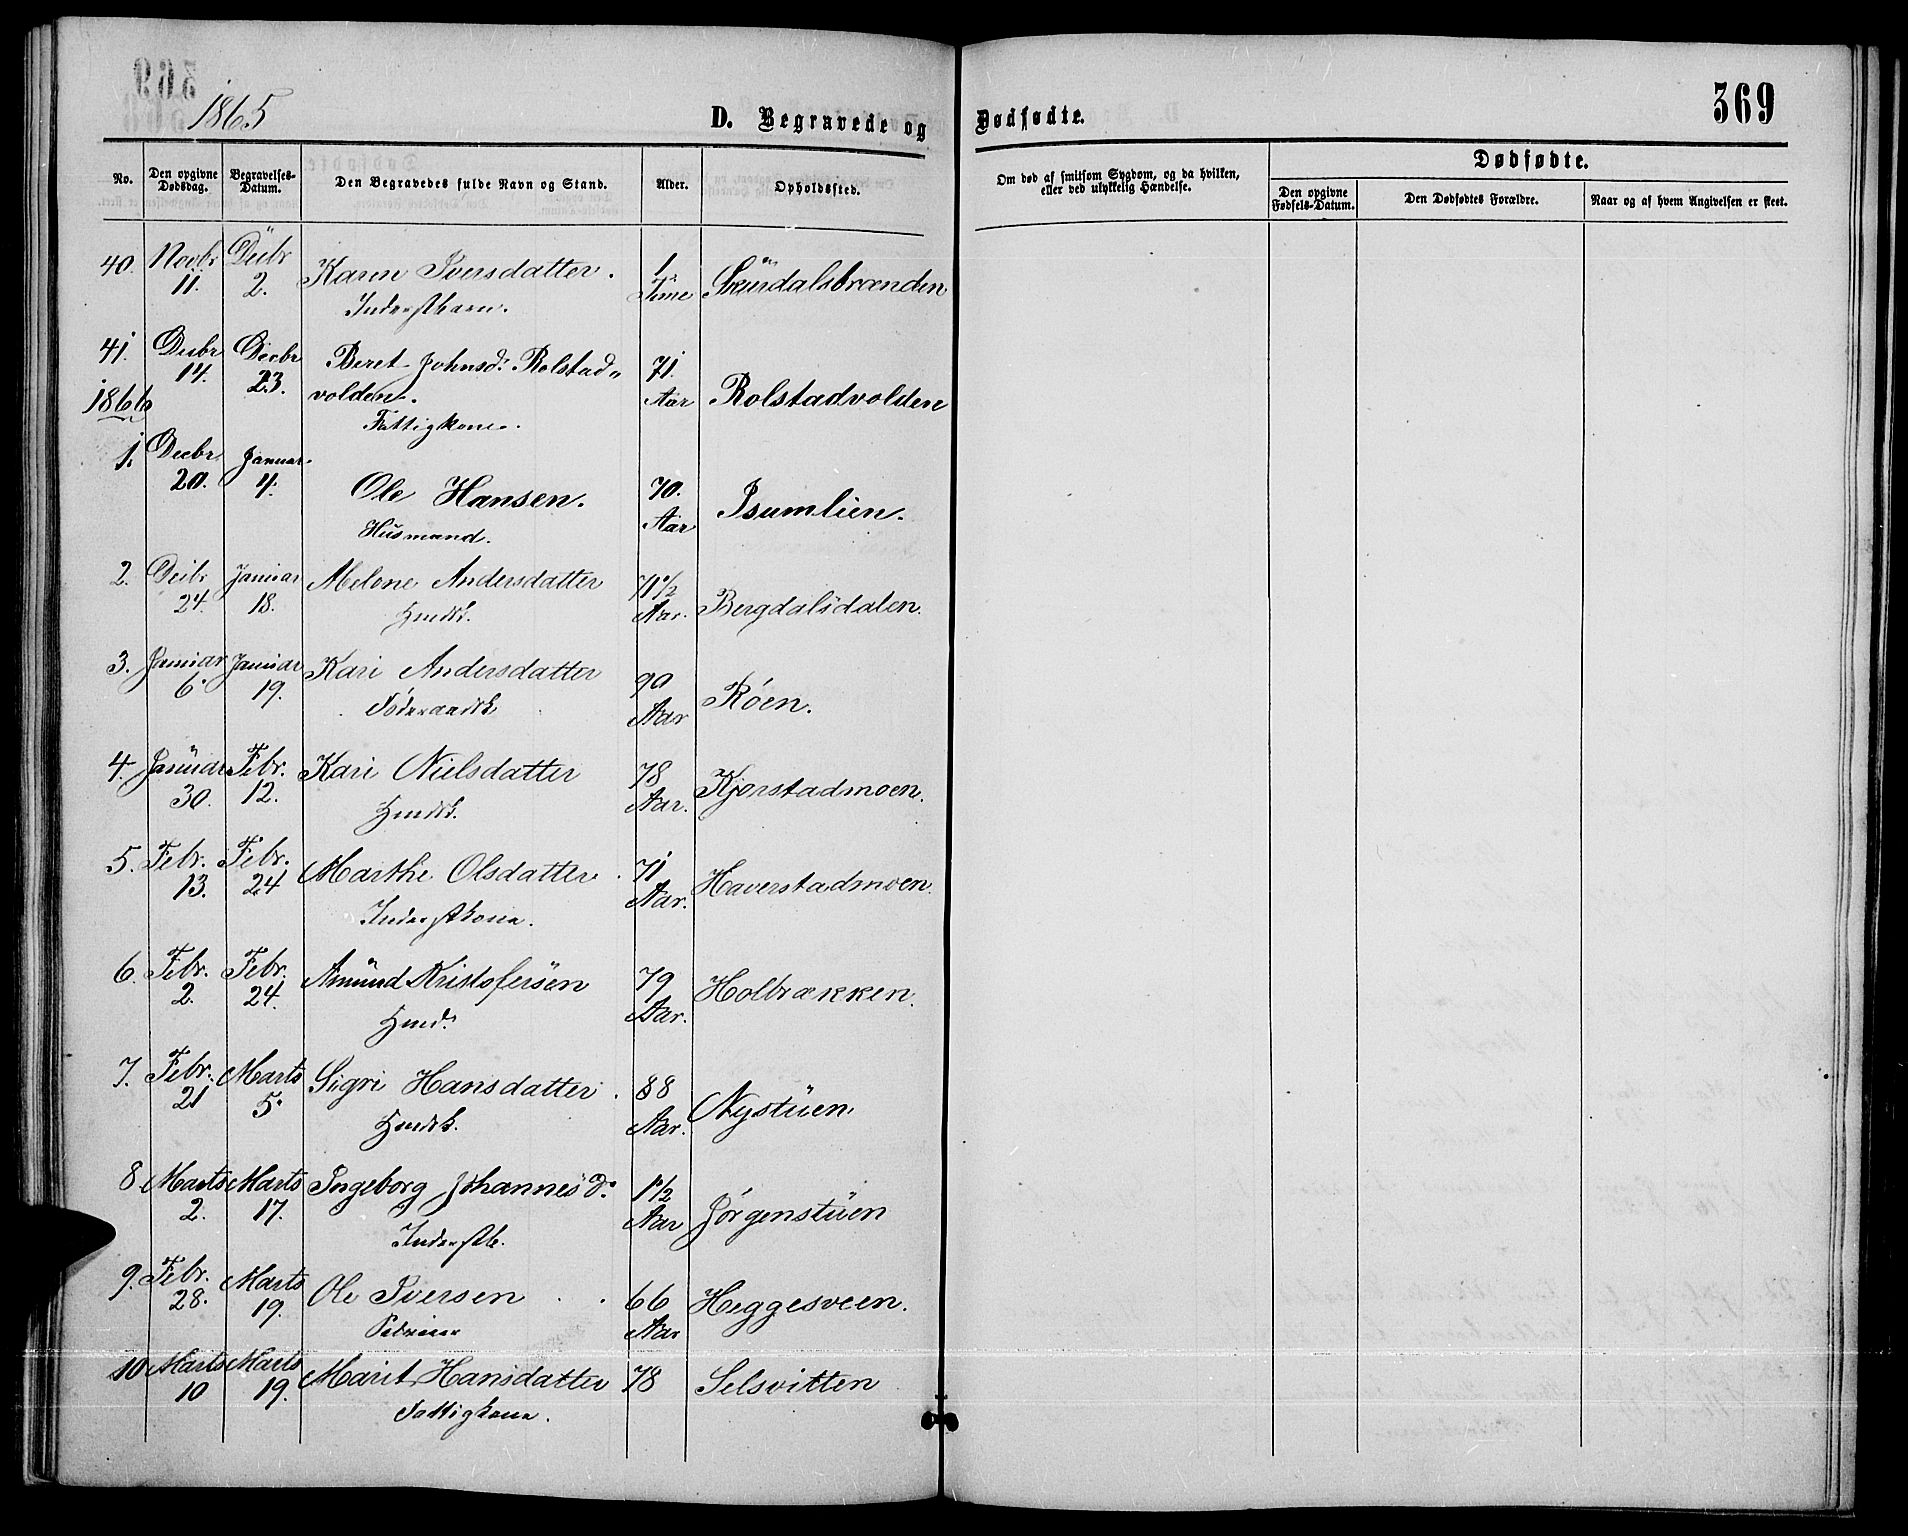 1865
D. Begravede og Dødfødte.
369
No.
Den opgivne Dødsdag.
Begravelses-Datum.
Den Begravedes fulde Navn og Stand.
Alder.
Opholdssted.
Om død af smitsom Sygdom, og da hvilken, eller ved ulykkelig Hændelse.
Dødfødte.
Den opgivne Fødsels-Datum.
Den Dødfødtes Forældre.
Naar og af hvem Angivelsen er skeet.
40. Novbr Decbr Karen Iversdatter. 1
11. 2. Inderstbarn. Time
41. Decbr Decbr Beret Johnsd. Rolstad„ 71.
14. 23. volden. Aar Rolstadvolden
Fattigkone.
1866
1. Decbr Januar
20. 4. Ole Hansen. 70. Isumlien.
Husmand. Aar
2. Decbr Januar Andersdatter 71 1/2
24. 18. Hmdk. Aar. Bergdalsdalen.
3. Januar Januar Kari Andersdatter 90
6. 19. Føderaadsk Aar Røen.
4. Januar Febr. Kari Nielsdatter 78 Kjorstadmoen.
30. 12. Hmdsk. Aar.
5. Febr. Febr. Marthe Olsdatter. 71 Haverstadmoen.
13. 24 Inderstkone. Aar.
6. Febr. Febr. Amund Kristofersen 79 Holbrækken.
2. 24. Hmd. Aar.
7. Febr. Marts Sigri Hansdatter. 88
21 5. Hmdsk. Aar. Nystuen.
8 Marts Marts Ingeborg Johannesd. 1 1/2
2. 17. Inderstb. Aar Jørgenstuen
9. Febr. Marts Ole Iversen 66 Heggesveen.
28. 19. Aar
10 Marts Marts Marit Hansdatter 78 Selsvitten
10 19. Fattigkone.